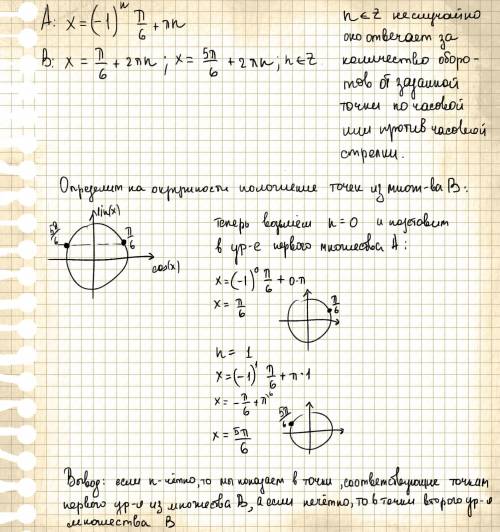 A: x = (-1)ⁿ π/6 + πn
B: x = π/6 + 2πn ; x = 5π/6 + 2πn ; n∈Z
n∈Z неслучайно
оно отвечает за
количество оборо-
тов от заданной
точки по часовой
или против часовой
стрелки.
Определим на окружности положение точек из множ-ва B:
sin(x)
5π/6
π/6
cos(x)
Теперь возьмём n = 0 и подставим
в ур-е первого множества A:
x = (-1)⁰ π/6 + 0·π
x = π/6
π/6
n = 1
x = (-1)¹ π/6 + π·1
x = -π/6 + π
x = 5π/6
5π/6
Вывод: если n-чётно, то мы попадаем в точки, соответствующие точкам
первого ур-я из множества B, а если нечётно, то в точки второго ур-я
множества B